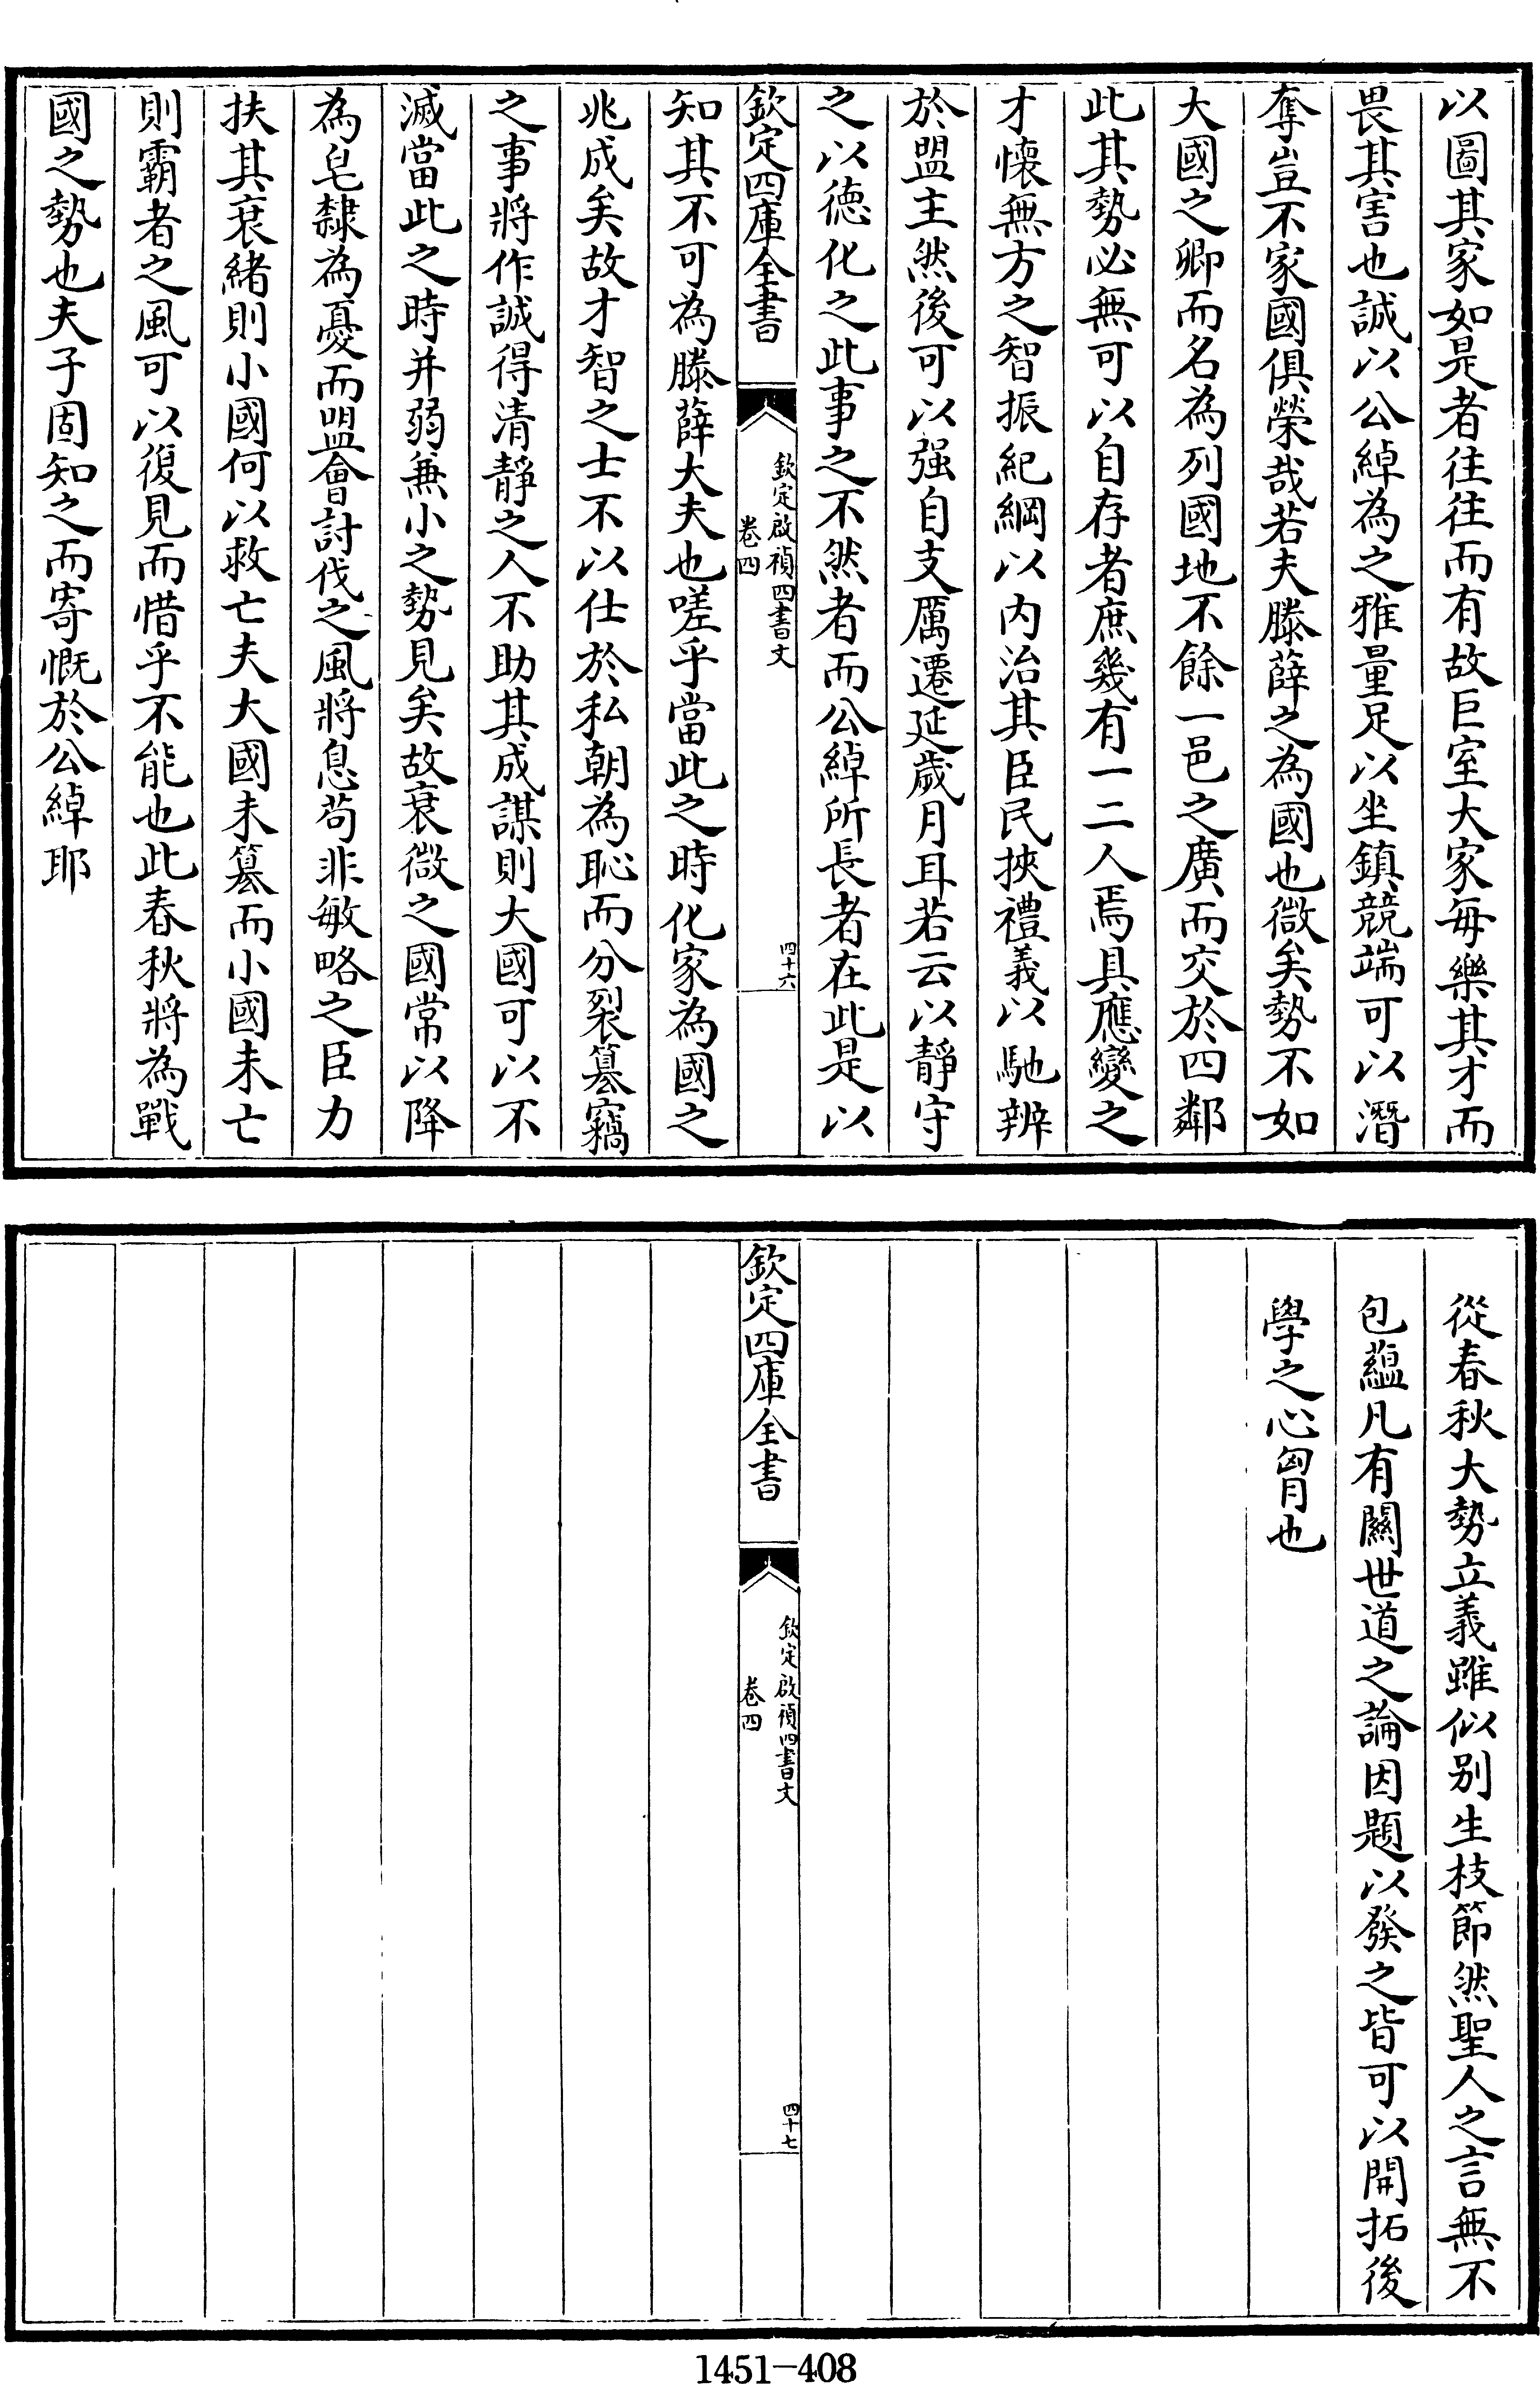 以圖其家如是者往往而有故巨室大家每樂其才而
畏其害也誠以公綽為之雅量足以坐鎮競端可以潛
奪豈不家國俱榮哉若夫滕薛之為國也微矣勢不如
大國之卿而名為列國地不餘一邑之廣而交於四鄰
此其勢必無可以自存者庶幾有一二人焉具應變之
才懷無方之智振紀綱以内治其臣民挾禮義以馳辨
於盟主然後可以强自支厲遷延歲月耳若云以靜守
之以德化之此事之不然者而公綽所長者在此是以
欽定四庫全書
欽定啟禎四書文
卷四
四十六
知其不可為滕薛大夫也嗟乎當此之時化家為國之
兆成矣故才智之士不以仕於私朝為恥而分裂篡竊
之事將作誠得清靜之人不助其成謀則大國可以不
滅當此之時并弱兼小之勢見矣故衰微之國常以降
為皂隸為憂而盟會討伐之風將息苟非敏略之臣力
扶其衰緒則小國何以救亡夫大國未篡而小國未亡
則霸者之風可以復見而惜乎不能也此春秋將為戰
國之勢也夫子固知之而寄慨於公綽耶
從春秋大勢立義雖似别生枝節然聖人之言無不
包蘊凡有關世道之論因題以發之皆可以開拓後
學之心胷也
欽定四庫全書
欽定啟禎四書文
卷四
四十七
1451-408